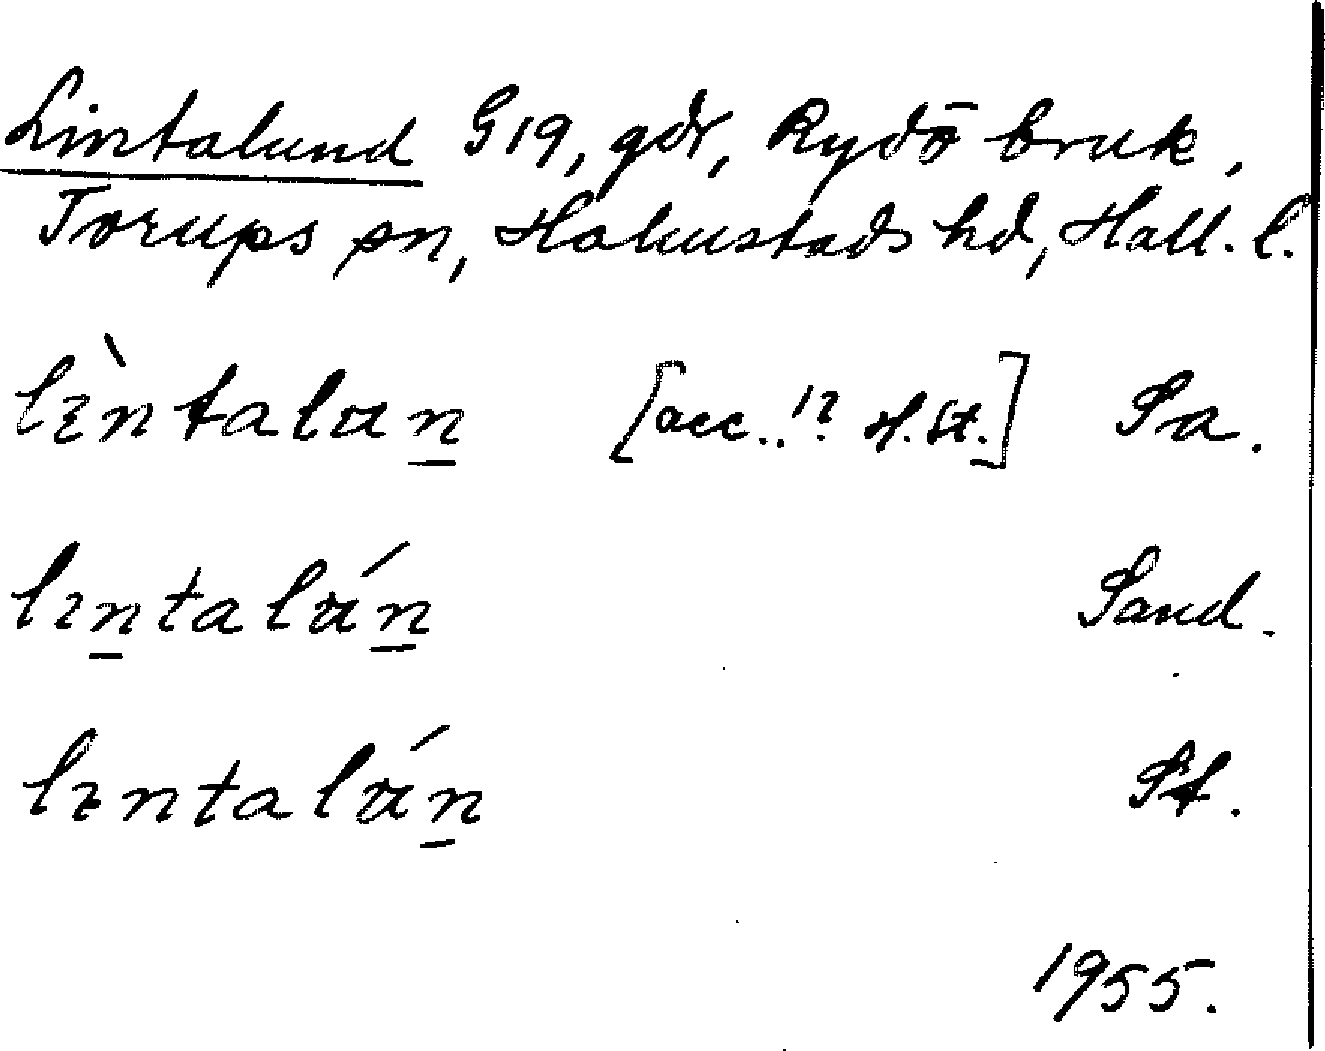 Lintalund G19, gdr, Rydö bruk,
Torups sn, Halmstads hd, Hall. l.
lìntalun [acc..!? H.St.] Sa.
lintalún Sand.
lintalún St.
1955.